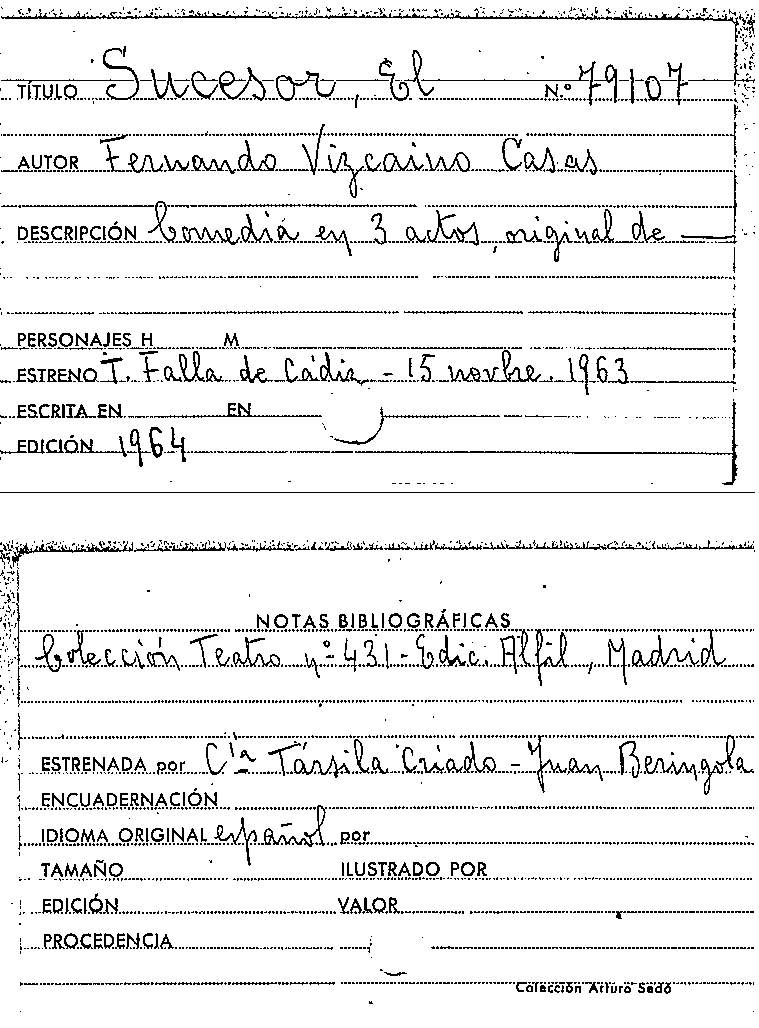 TÍTULO Sucesor, El N.º 79107
AUTOR Fernando Vizcaino Casas
DESCRIPCIÓN Comedia en 3 actos, original de —
PERSONAJES H M
ESTRENO T. Falla de Cádiz - 15 novbre. 1963
ESCRITA EN EN
EDICIÓN 1964
NOTAS BIBLIOGRÁFICAS
Colección Teatro nº 431 - Edic. Alfil, Madrid
ESTRENADA por Cía Társila Criado - Juan Beringola
ENCUADERNACIÓN
IDIOMA ORIGINAL español por
TAMAÑO ILUSTRADO POR
EDICIÓN VALOR
PROCEDENCIA
Colección Arturo Sedó